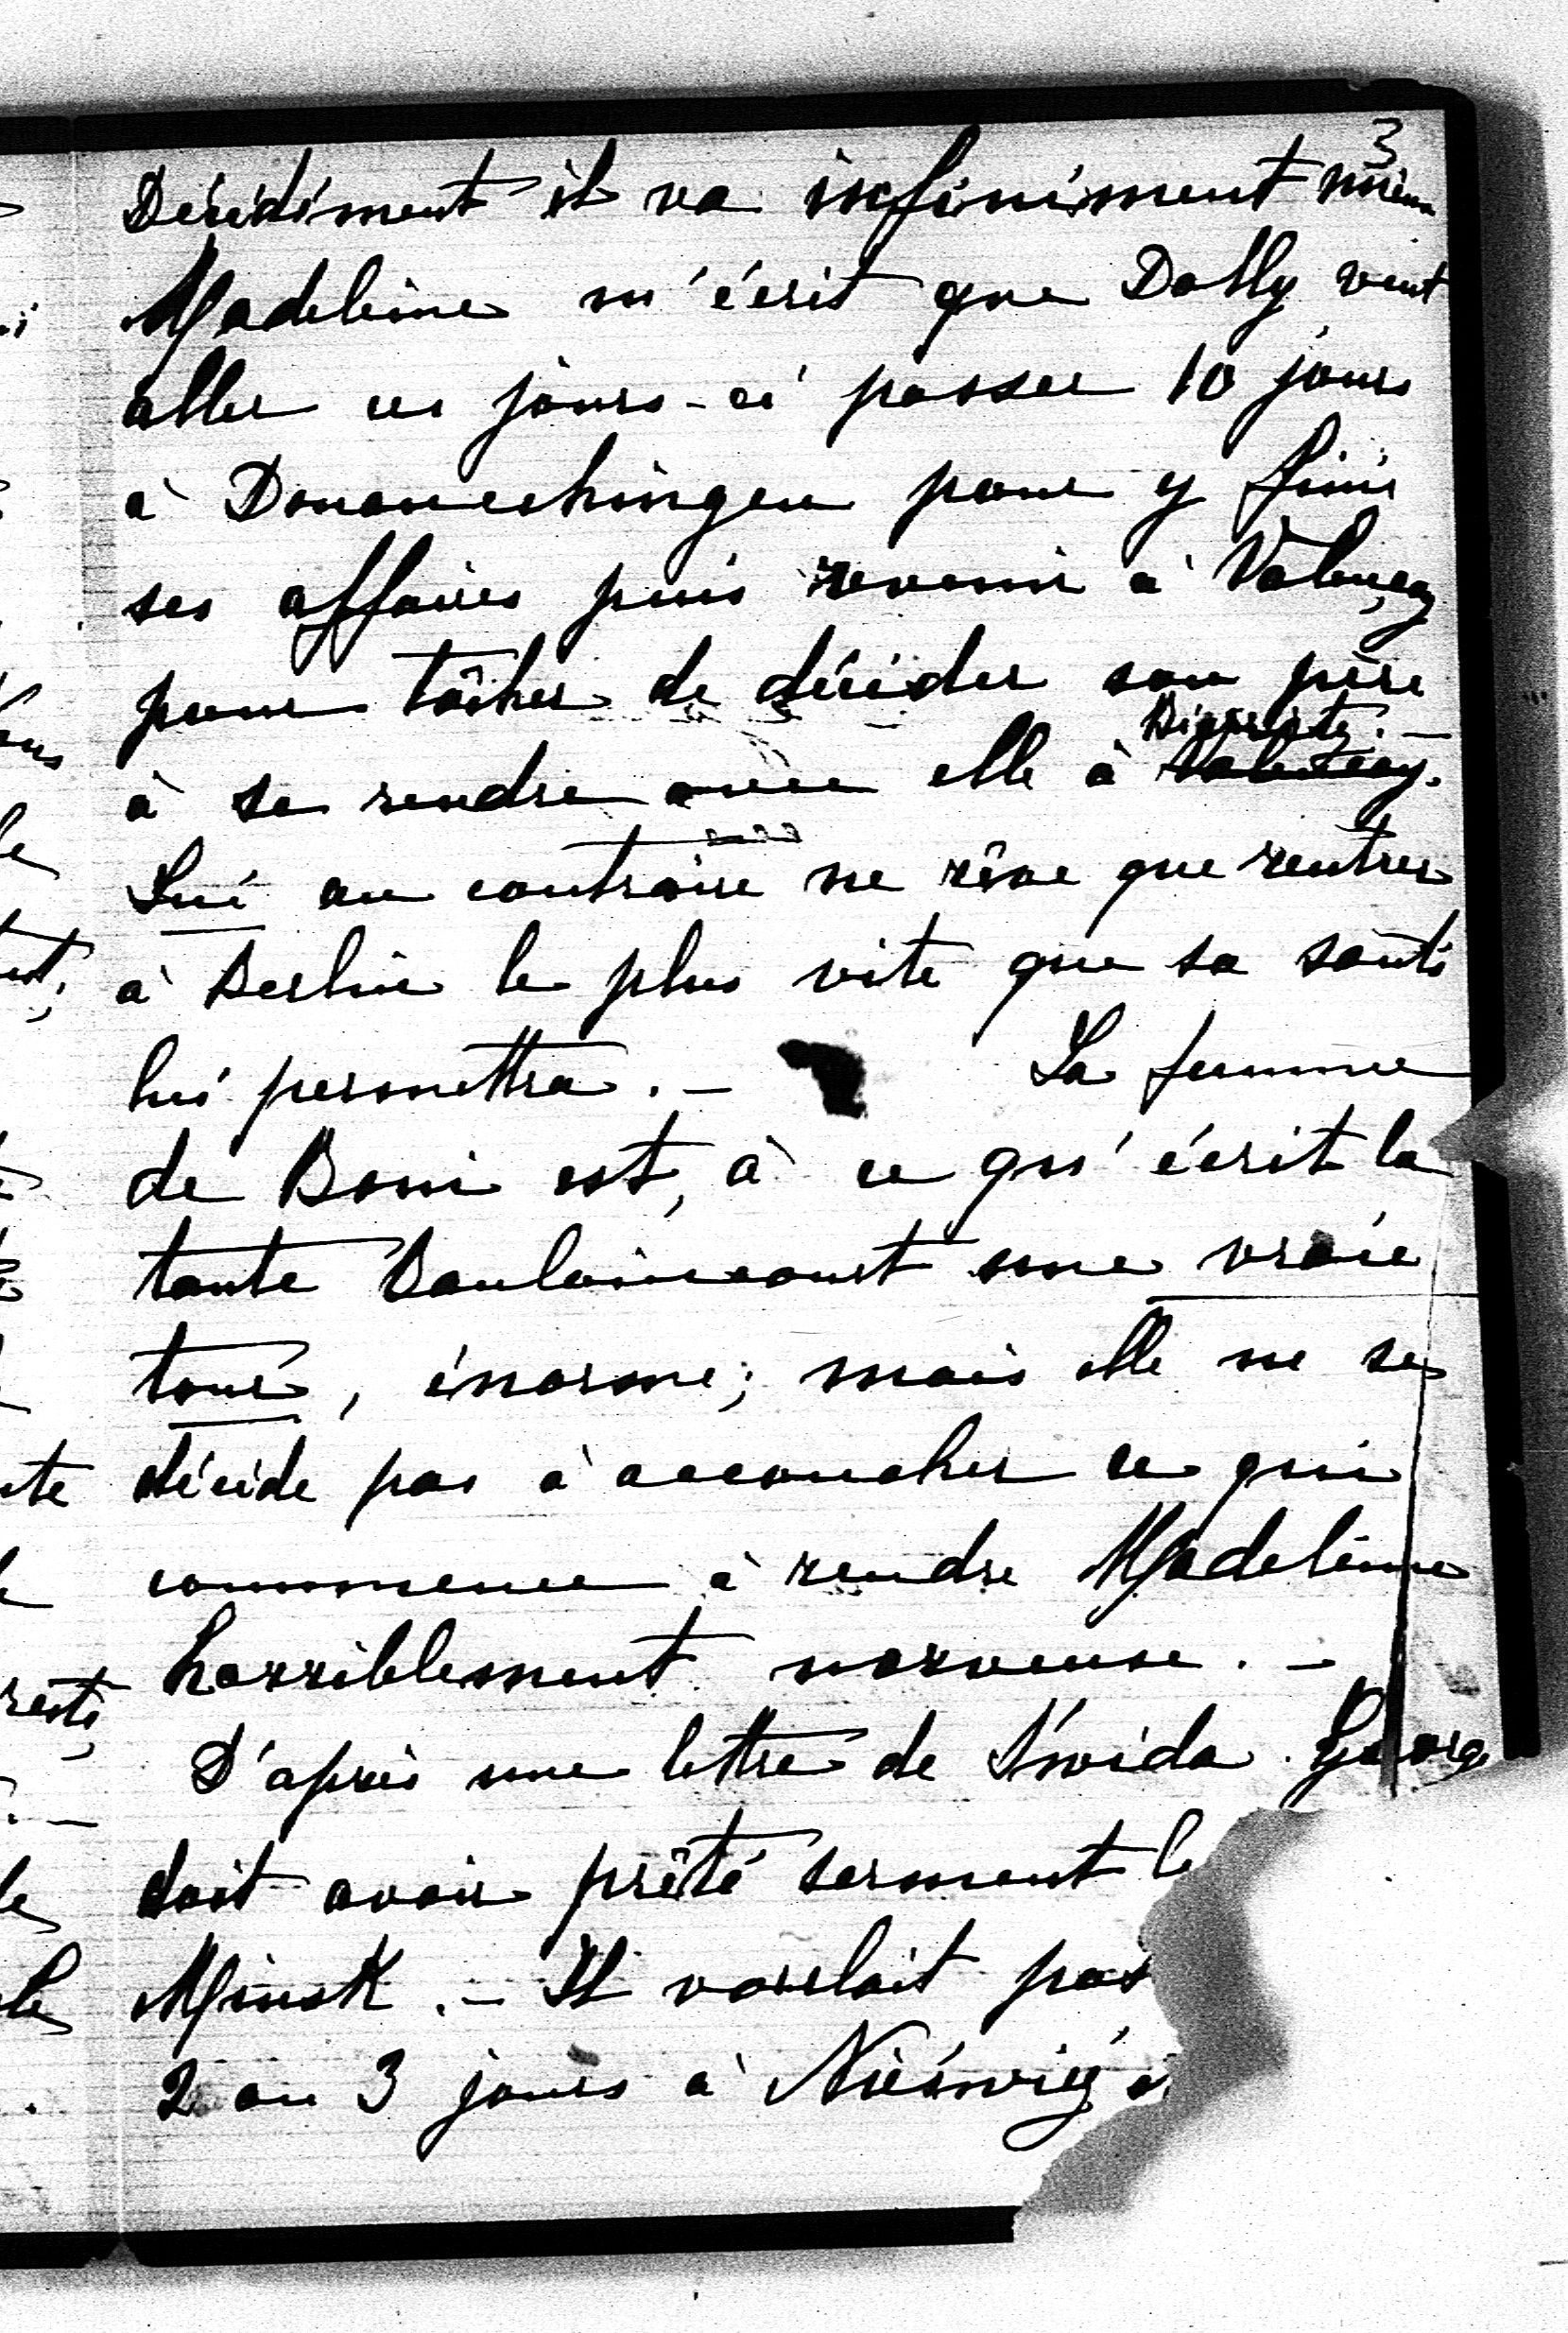 3
Décidément il va infiniment mieux
Madeleine m'écrit que Dolly veut
aller ces jours-ci passer 10 jours
à Donaueschingen pour y finir
ses affaires puis revenir à Valençay
pour tâcher de décider son père
Biarritz. –
à se rendre avec elle à Valençay.
Lui au contraire ne rêve que rentrer
à Berlin le plus vite que sa santé
lui permettra. – La femme
de Boni est, à ce qu'écrit la
tante Baulaincourt une vraie
tour, énorme; mais elle ne se
décide pas à accoucher ce qui
commence à rendre Madeleine
horriblement nerveuse. –
D'après une lettre de George
doit avoir prêté serment le
Minsk. – Il voulait pas
2 ou 3 jours à Nieśwież